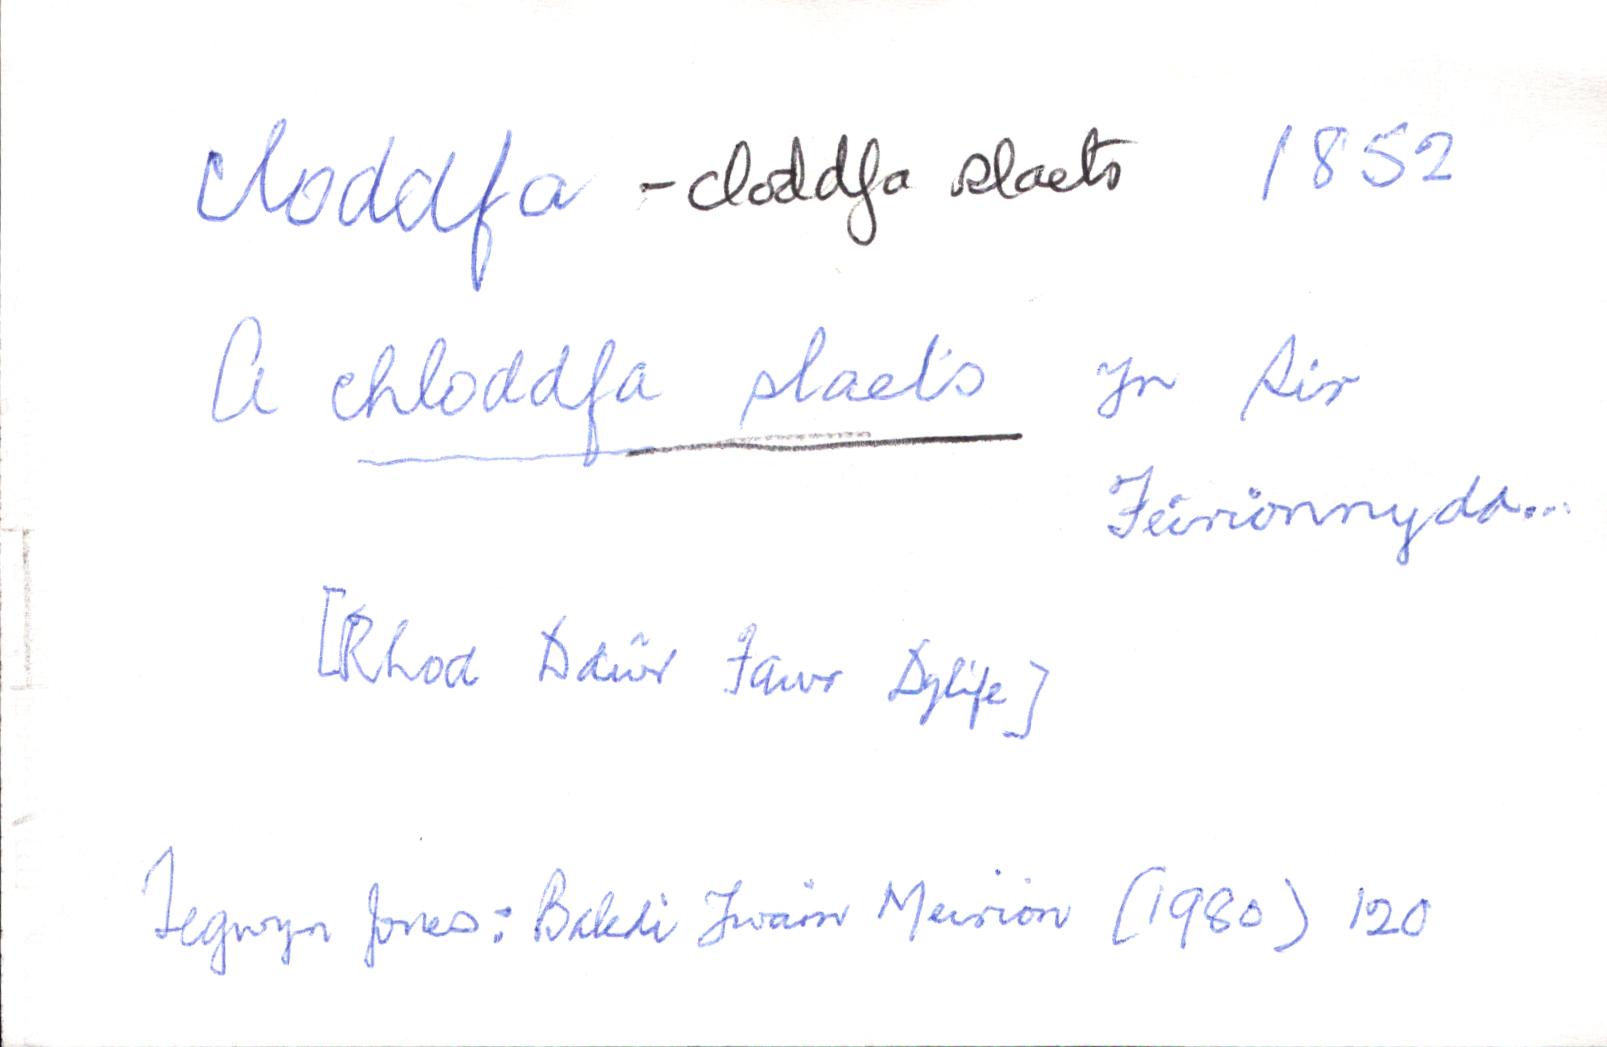 cloddfa - cloddfa slaets 1852
A chloddfa slaets yn Sir
Feirionnydd...
[Rhod Ddŵr Fawr Dylife]
Tegwyn Jones: Baledi Ywain Meirion (1980) 120